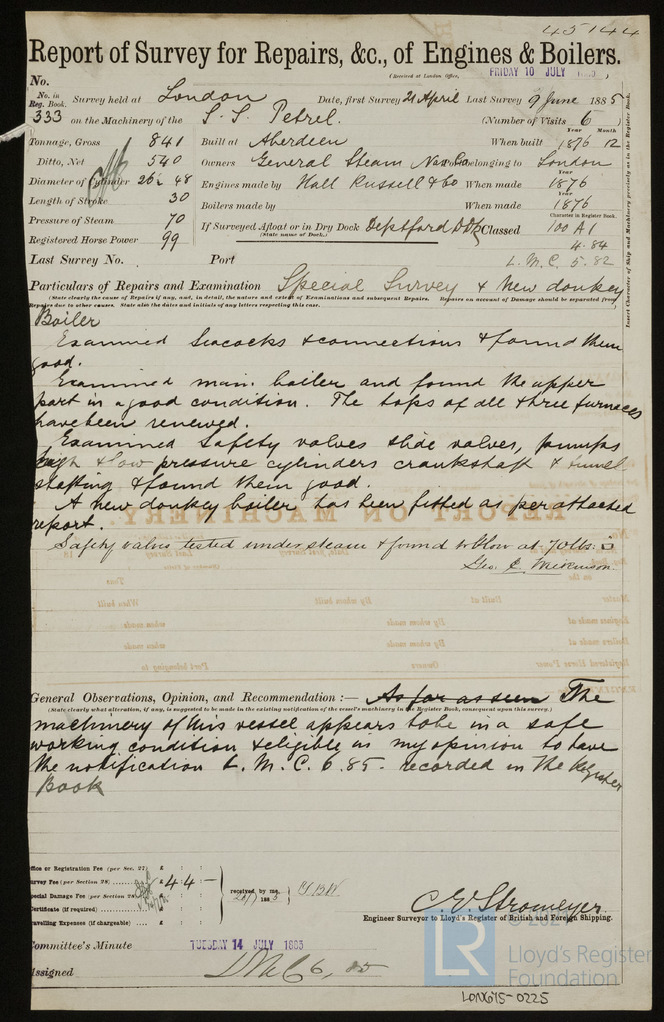 45144
Report of Survey for Repairs, &c., of Engines & Boilers.
(Received at London Office, FRIDAY 10 JULY 1885)
No.
No. in Reg. Book. Survey held at London Date, first Survey 21 April Last Survey 9 June 1885
333 on the Machinery of the S.S. Petrel. (Number of Visits 6)
Year Month
Tonnage, Gross 841 Built at Aberdeen When built 1876 12
Ditto, Net 540 Owners General Steam Nav Co belonging to London
Year
Diameter of Cylinder 26½ 48 Engines made by Hall Russell & Co When made 1876
Year
Length of Stroke 30 Boilers made by When made 1876
Character in Register Book.
Pressure of Steam 70 If Surveyed Afloat or in Dry Dock Deptford Classed 100 A1
(State name of Dock.)
Registered Horse Power 99 4.84
Last Survey No. Port L.M.C. 5.82
Insert Character of Ship and Machinery precisely as in the Register Book.
Particulars of Repairs and Examination Special Survey & New donkey
(State clearly the cause of Repairs if any, and, in detail, the nature and extent of Examinations and subsequent Repairs. Repairs on account of Damage should be separated from
Repairs due to other causes. State also the dates and initials of any letters respecting this case.
Boiler
Examined Seacocks & connections & found them
good.
Examined main boiler and found the upper
part in a good condition. The tops of all three furnaces
have been renewed.
Examined Safety valves slide valves, pumps
high & low pressure cylinders crankshaft & tunnel
shafting & found them good.
A new donkey boiler has been fitted as per attached
report.
REPORT ON MACHINERY.
Safety valve tested under steam & found to blow at 70 lbs.
Geo. C. Wilkinson
General Observations, Opinion, and Recommendation :— As far as seen The
(State clearly what alteration, if any, is suggested to be made in the existing notification of the vessel's machinery in the Register Book, consequent upon this survey.)
machinery of this vessel appears to be in a safe
working condition & eligible in my opinion to have
the notification L.M.C. 6.85 recorded in the Register
Book
Office or Registration Fee (per Sec. 27) £ : :
Survey Fee (per Section 28) £ 4 : 4 : —
Special Damage Fee (per Section 28) £ : :
Certificate (if required) £ : :
Travelling Expenses (if chargeable) £ : :
received by me,
C. E. Stromeyer
Engineer Surveyor to Lloyd's Register of British and Foreign Shipping.
Committee's Minute TUESDAY 14 JULY 1885
Assigned LMC 6,85
LR
© 2021
Lloyd's Register
Foundation
LON675-0225